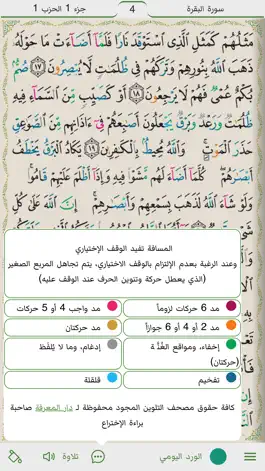 سورة البقرة
4
جزء 1 الحزب 1
مَثَلُهُمْ كَمَثَلِ ٱلَّذِى ٱسْتَوْقَدَ نَارًا فَلَمَّآ أَضَآءَتْ مَا حَوْلَهُۥ
ذَهَبَ ٱللَّهُ بِنُورِهِمْ وَتَرَكَهُمْ فِى ظُلُمَٰتٍ لَّا يُبْصِرُونَ ١٧ صُمٌّۢ
بُكْمٌ عُمْىٌ فَهُمْ لَا يَرْجِعُونَ ١٨ أَوْ كَصَيِّبٍ مِّنَ ٱلسَّمَآءِ فِيهِ
ظُلُمَٰتٌ وَرَعْدٌ وَبَرْقٌ يَجْعَلُونَ أَصَٰبِعَهُمْ فِىٓ ءَاذَانِهِم مِّنَ ٱلصَّوَٰعِقِ
حَذَرَ ٱلْمَوْتِ ۚ وَٱللَّهُ مُحِيطٌۢ بِٱلْكَٰفِرِينَ ١٩ يَكَادُ ٱلْبَرْقُ يَخْطَفُ
أَبْصَٰرَهُمْ ۖ كُلَّمَآ أَضَآءَ لَهُم مَّشَوْا۟ فِيهِ وَإِذَآ أَظْلَمَ عَلَيْهِمْ قَامُوا۟ ۚ
وَلَوْ شَآءَ ٱللَّهُ لَذَهَبَ بِسَمْعِهِمْ وَأَبْصَٰرِهِمْ ۚ إِنَّ ٱللَّهَ عَلَىٰ كُلِّ
المسافة تفيد الوقف الإختياري
وعند الرغبة بعدم الإلتزام بالوقف الاختياري، يتم تجاهل المربع الصغير
(الذي يعطل حركة وتنوين الحرف عند الوقف عليه)
مد 6 حركات لزوماً
مد واجب 4 أو 5 حركات
مد 2 أو 4 أو 6 جوازاً
مد حركتان
إخفاء، ومواقع الغُنَّة (حركتان)
إدغام، وما لا يُلفَظ
تفخيم
قلقلة
كافة حقوق مصحف التلوين المجود محفوظة لـ دار المعرفة صاحبة
براءة الإختراع
الورد اليومي
تلاوة